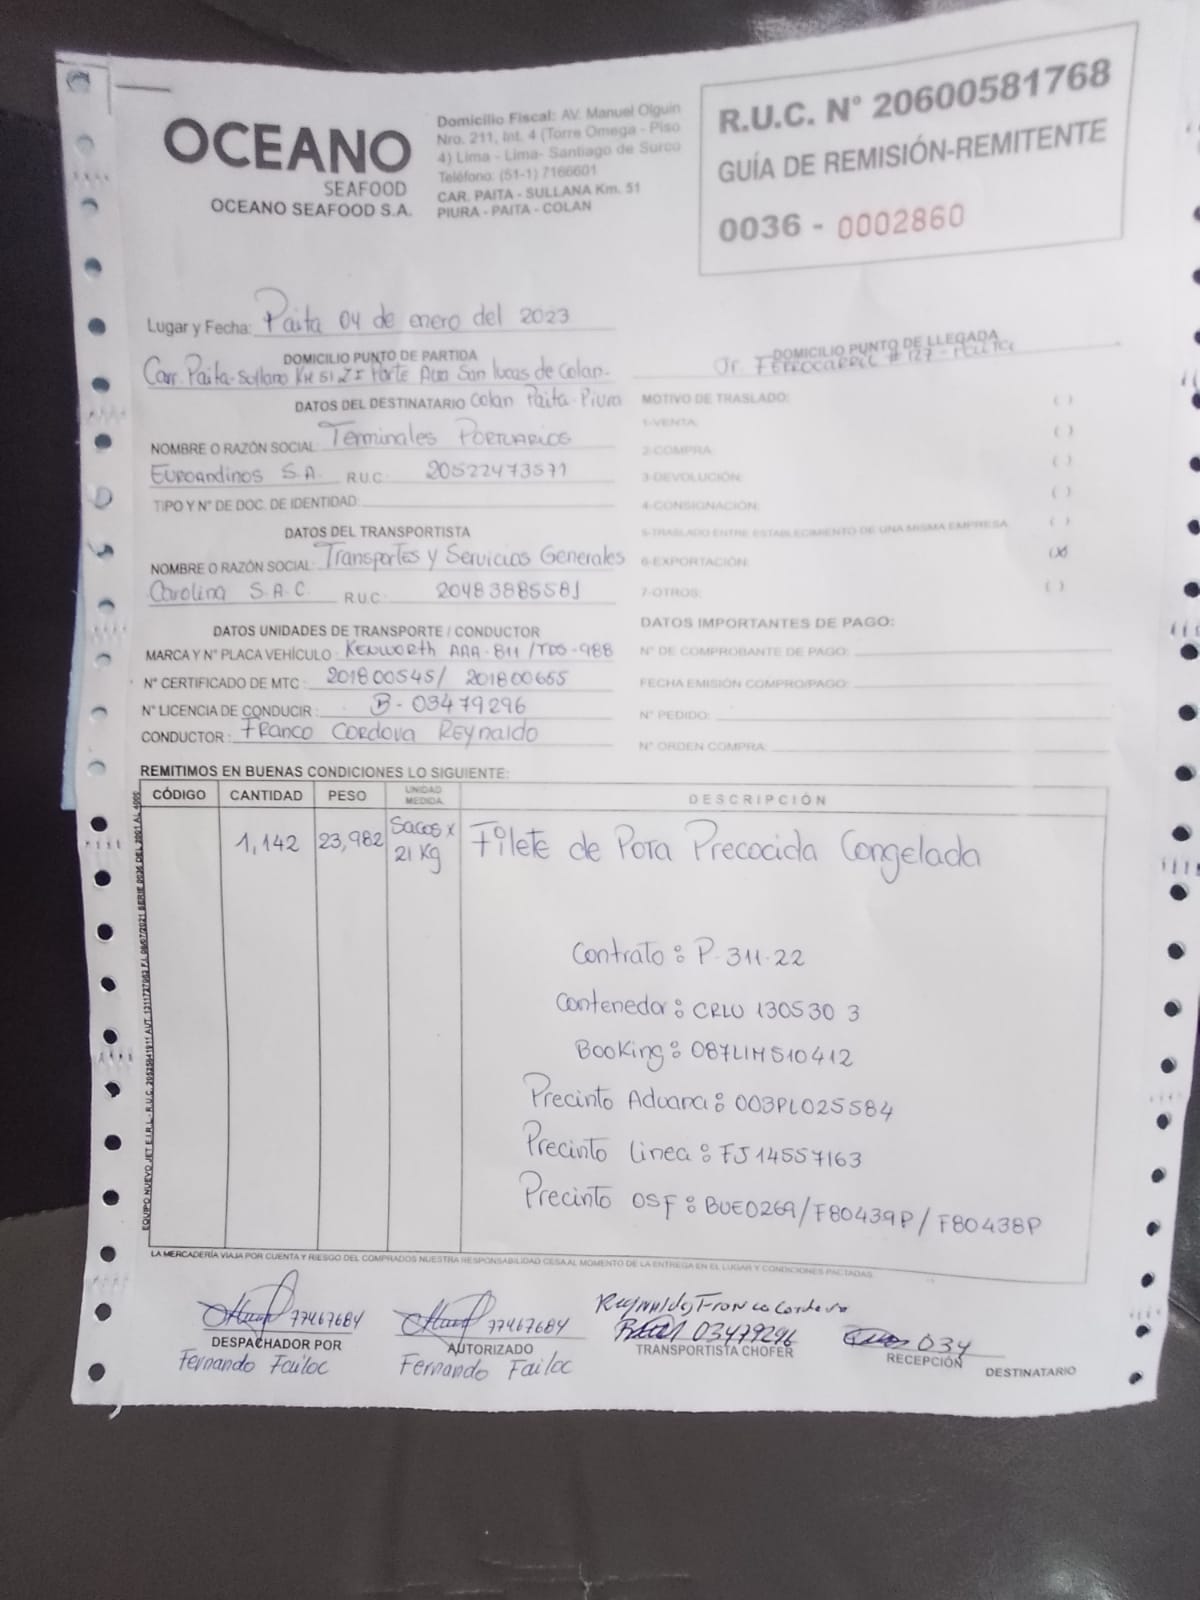 OCEANO
SEAFOOD
OCEANO SEAFOOD S.A.
Domicilio Fiscal: AV. Manuel Olguin
Nro. 211, Int. 4 (Torre Omega - Piso
4) Lima - Lima- Santiago de Surco
Teléfono: (51-1) 7166601
CAR. PAITA - SULLANA Km. 51
PIURA - PAITA - COLAN
R.U.C. N° 20600581768
GUÍA DE REMISIÓN-REMITENTE
0036 - 0002860
Lugar y Fecha: Paita 04 de enero del 2023
DOMICILIO PUNTO DE PARTIDA
Carr. Paita-Sullana KM 51 ZI Parte Alta San lucas de Colan-
Colan Paita-Piura
DOMICILIO PUNTO DE LLEGADA
Jr. Ferrocarril # 127 -
DATOS DEL DESTINATARIO
NOMBRE O RAZÓN SOCIAL: Terminales Portuarios
Euroandinos S.A. R.U.C. 20522473571
TIPO Y N° DE DOC. DE IDENTIDAD:
DATOS DEL TRANSPORTISTA
NOMBRE O RAZÓN SOCIAL: Transportes y Servicios Generales
Carolina S.A.C. R.U.C. 20483885581
DATOS UNIDADES DE TRANSPORTE / CONDUCTOR
MARCA Y N° PLACA VEHÍCULO: Kenworth AAA-811 /TDS-988
N° CERTIFICADO DE MTC: 201800545/ 201800655
N° LICENCIA DE CONDUCIR: B-03479296
CONDUCTOR: Franco Cordova Reynaldo
MOTIVO DE TRASLADO: ( )
1-VENTA: ( )
2-COMPRA: ( )
3-DEVOLUCIÓN: ( )
4-CONSIGNACIÓN:
5-TRASLADO ENTRE ESTABLECIMIENTO DE UNA MISMA EMPRESA ( )
6-EXPORTACIÓN: (X)
7-OTROS: ( )
DATOS IMPORTANTES DE PAGO:
N° DE COMPROBANTE DE PAGO:
FECHA EMISIÓN COMPRO/PAGO:
N° PEDIDO:
N° ORDEN COMPRA:
REMITIMOS EN BUENAS CONDICIONES LO SIGUIENTE:
CÓDIGO CANTIDAD PESO UNIDAD MEDIDA DESCRIPCIÓN
1,142 23,982 Sacos x 21 Kg Filete de Pota Precocida Congelada
Contrato: P-311-22
Contenedor: CRLU 130530 3
Booking: 087LIM510412
Precinto Aduana: 003PL025584
Precinto Linea: FJ14557163
Precinto OSF: BUE0269/F80439P/F80438P
LA MERCADERÍA VIAJA POR CUENTA Y RIESGO DEL COMPRADOS NUESTRA RESPONSABILIDAD CESA AL MOMENTO DE LA ENTREGA EN EL LUGAR Y CONDICIONES PACTADAS.
77467684
DESPACHADOR POR
Fernando Failoc
77467684
AUTORIZADO
Fernando Failoc
Reynaldo Franco Cordova
03479296
TRANSPORTISTA CHOFER
034
RECEPCIÓN
DESTINATARIO